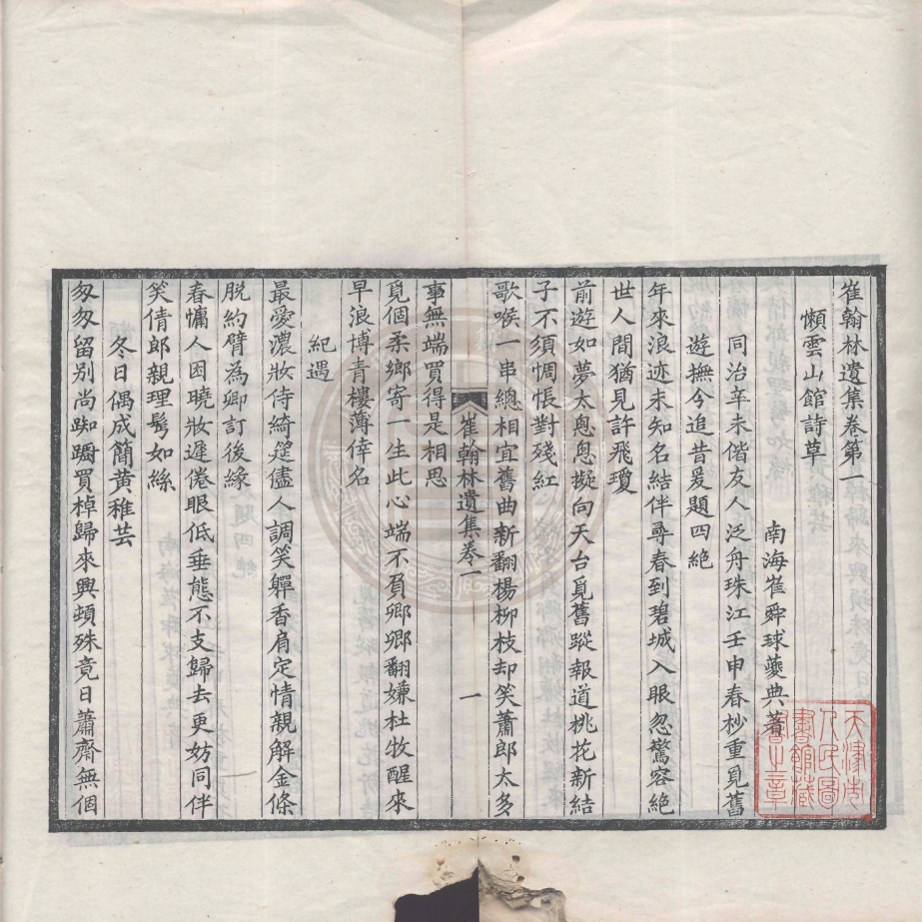 崔翰林遺集卷第一
懶雲山館詩草
南海崔舜球夔典著
同治辛未偕友人泛舟珠江壬申春杪重覓舊
遊撫今追昔爰題四絶
年來浪迹未知名結伴尋春到碧城入眼忽驚容絶
世人間猶見許飛瓊
前遊如夢太悤悤擬向天台覓舊蹤報道桃花新結
子不須惆悵對殘紅
歌喉一串總相宜舊曲新翻楊柳枝却笑蕭郎太多
崔翰林遺集卷一
一
事無端買得是相思
覓個柔鄉寄一生此心端不負卿卿翻嫌杜牧醒來
早浪博青樓薄倖名
紀遇
最愛濃妝侍綺筵儘人調笑嚲香肩定情親解金條
脫約臂為卿訂後緣
春慵人困曉妝遲倦眼低垂態不支歸去更妨同伴
笑倩郎親理鬢如絲
冬日偶成簡黃稚芸
匆匆留别尚踟躕買棹歸來興頓殊竟日蕭齋無個
天津市
人民圖
書館藏
書之章